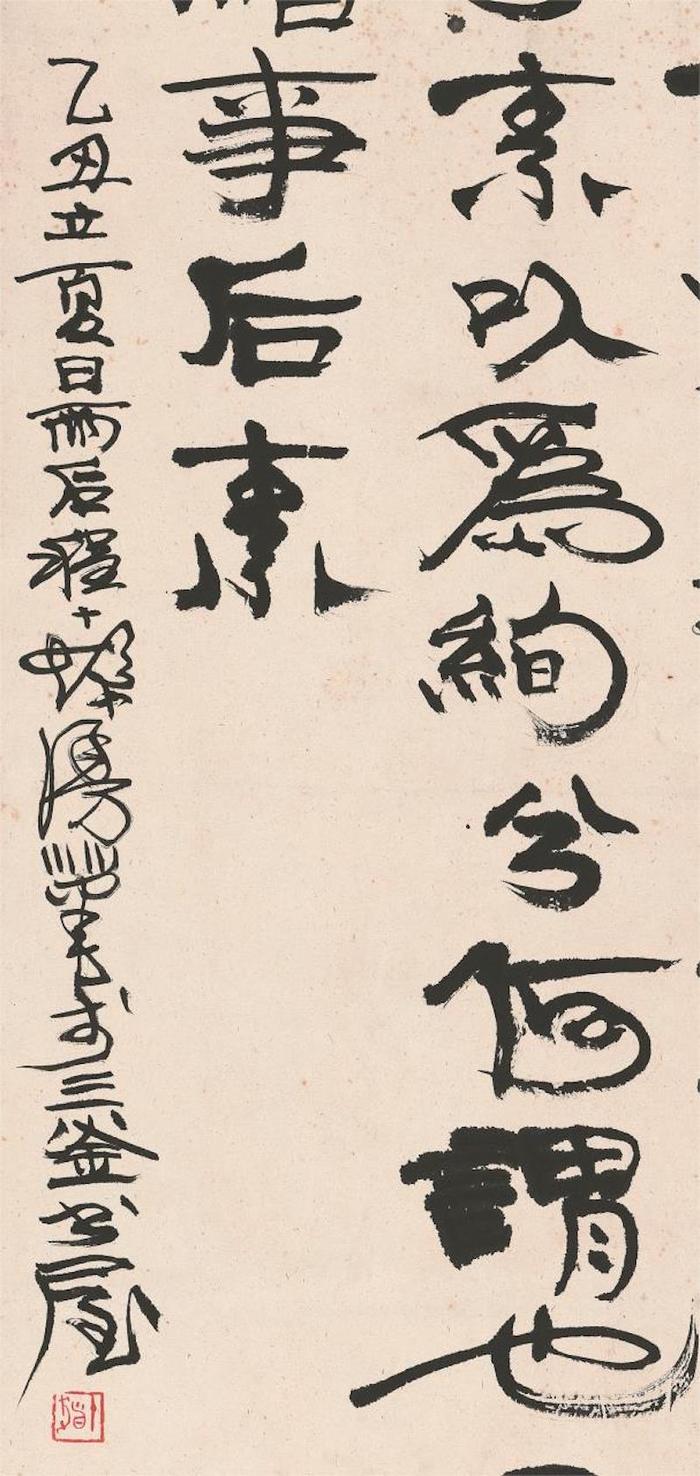 素以為絢兮何謂也
事后素
乙丑立夏日雨后程十
於三釜书屋